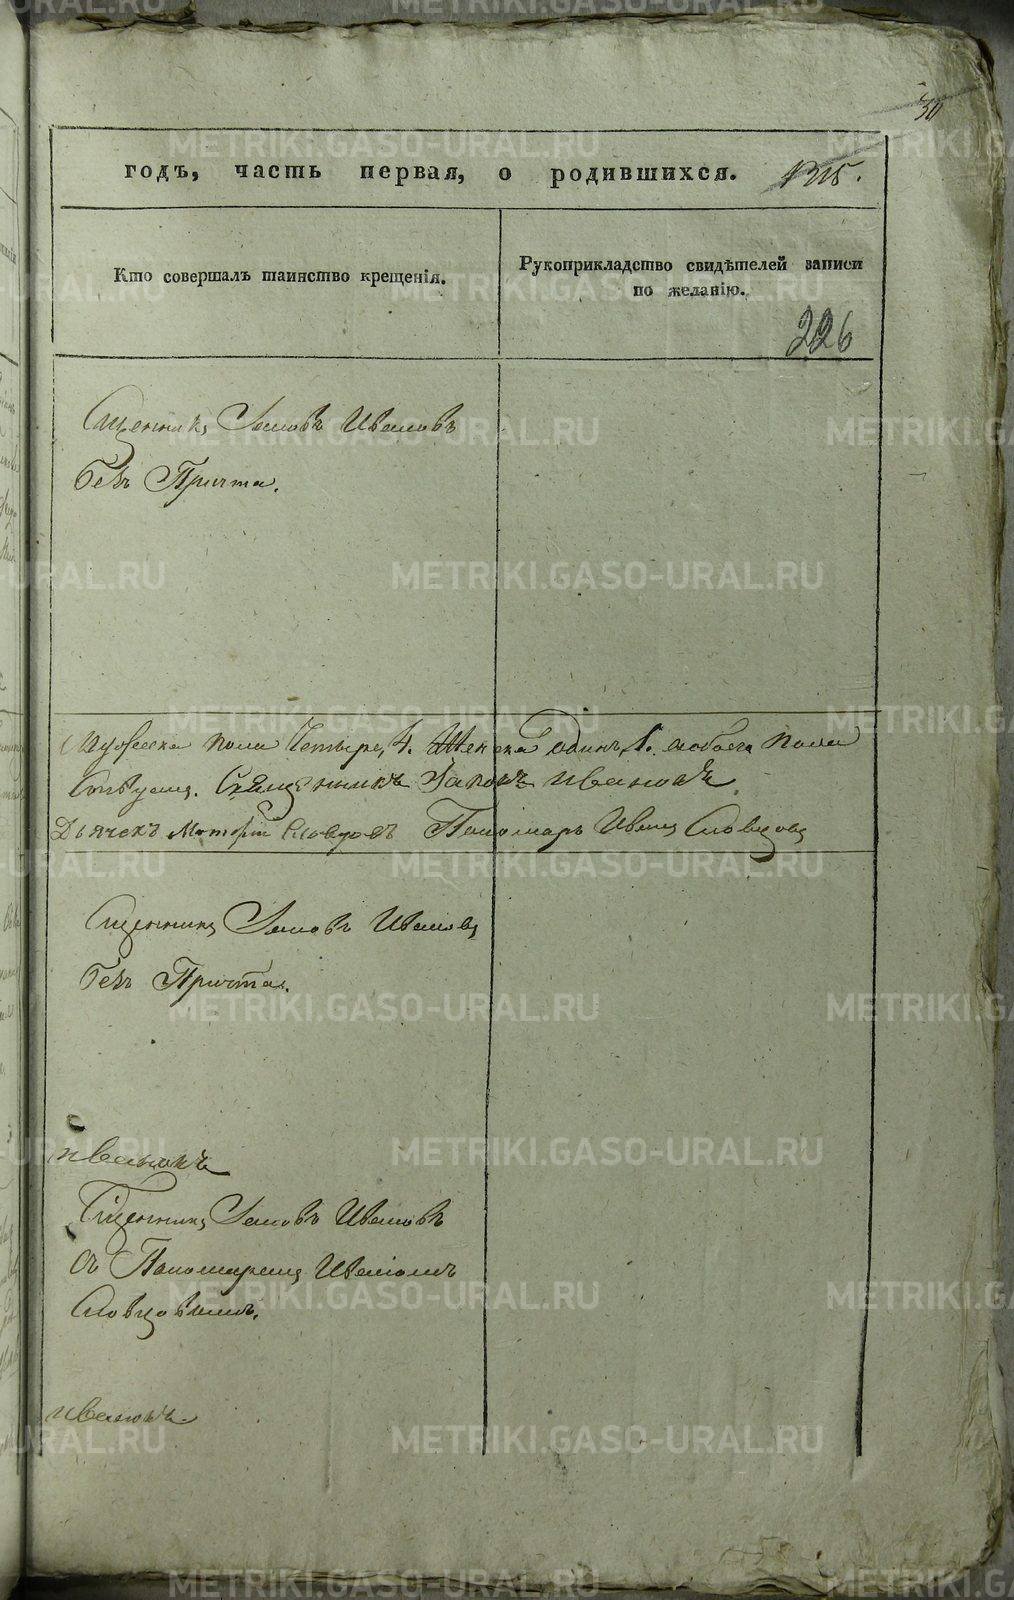 30
годъ, часть первая, о родившихся. 1315.
Кто совершалъ таинство крещенія.
Рукоприкладство свидѣтелей записи
по желанію.
226
Сщенникъ Іаковъ Ивановъ
безъ Причта.
Мужеска пола Четыре, 4. Женска Одинъ, 1. обоего пола
Священникъ Іаковъ Ивановъ
Дьячекъ Словцовъ Пономарь Иванъ Словцовъ
Сщенникъ Іаковъ Ивановъ
безъ Причта.
Ивановъ
Сщенникъ Іаковъ Ивановъ
съ Пономаремъ Иваномъ
Словцовымъ.
Ивановъ
METRIKI.GASO-URAL.RU